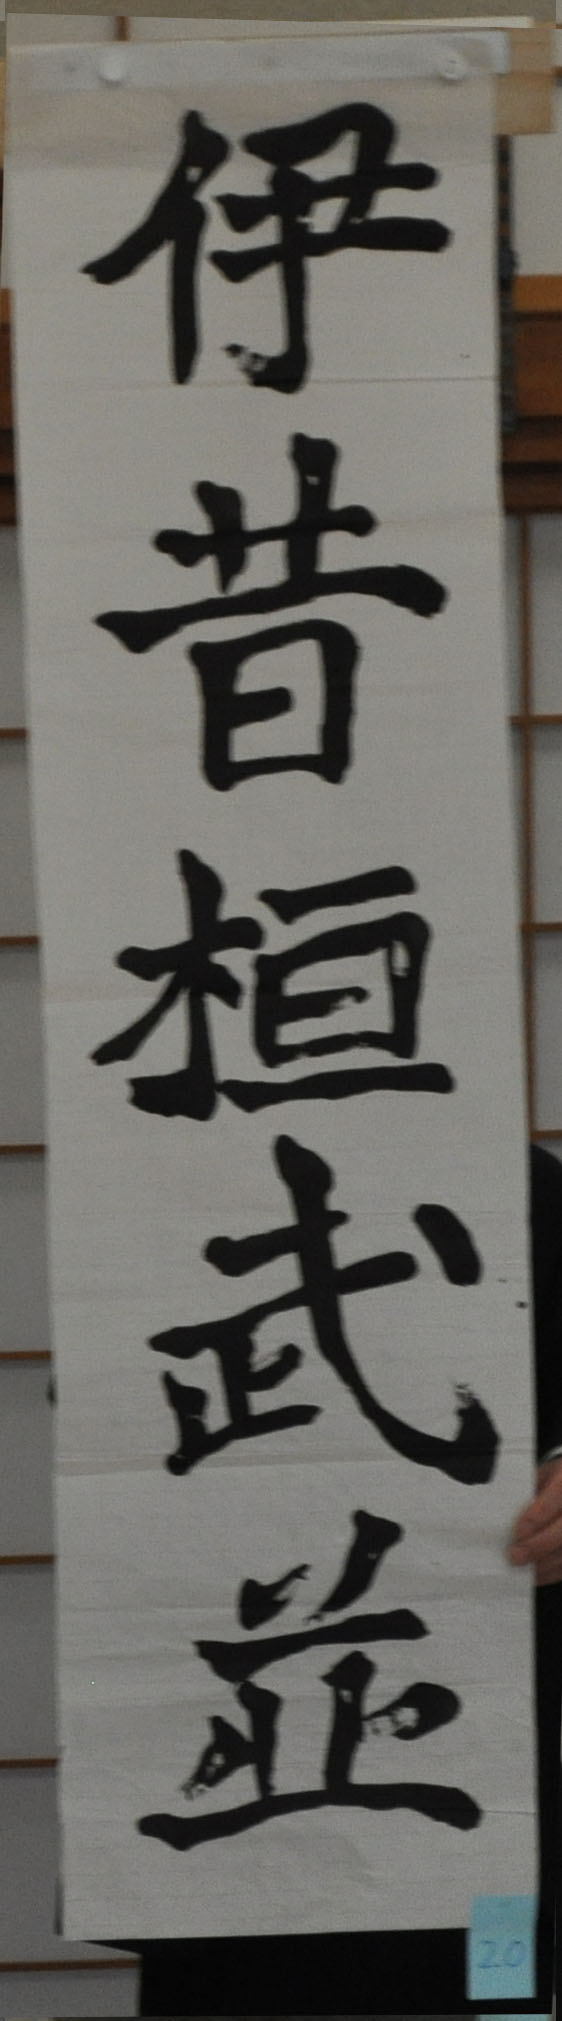 伊昔桓武並
20